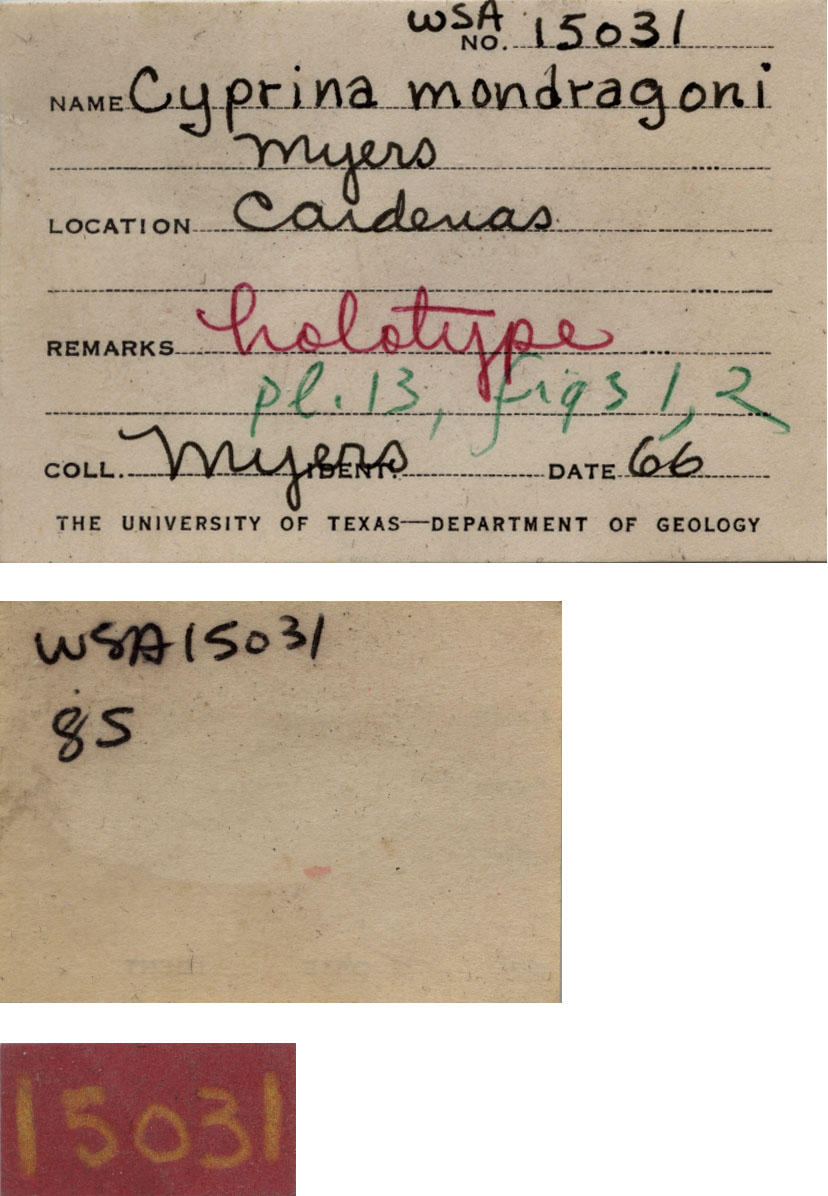 WSA
NO. 15031
NAME Cyprina mondragoni
Myers
LOCATION Cardenas
REMARKS holotype
pl. 13, figs 1, 2
COLL. Myers IDENT. DATE 66
THE UNIVERSITY OF TEXAS—DEPARTMENT OF GEOLOGY
WSA 15031
85
15031